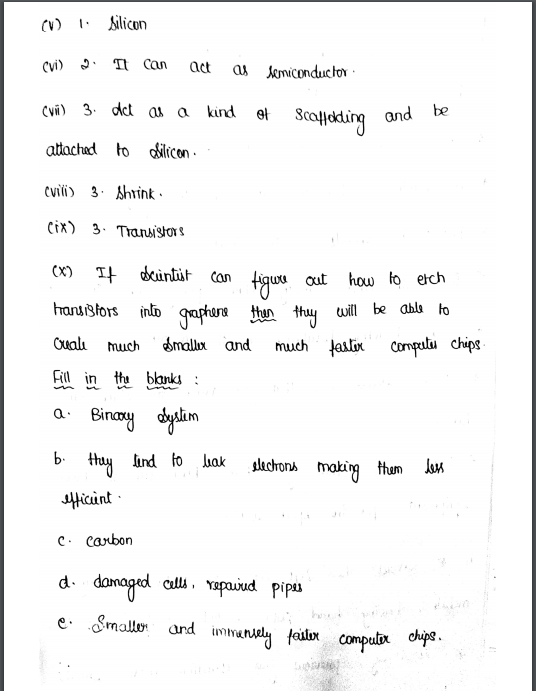 (v) 1. Silicon
(vi) 2. It can act as semiconductor.
(vii) 3. Act as a kind of scaffolding and be
attached to silicon.
(viii) 3. Shrink.
(ix) 3. Transistors
(x) If scientist can figure out how to etch
transistors into graphene then they will be able to
create much smaller and much faster computer chips.
Fill in the blanks :
a. Binary system
b. they tend to leak electrons making them less
efficient.
c. carbon
d. damaged cells, repaired pipes
e. Smaller and immensely faster computer chips.